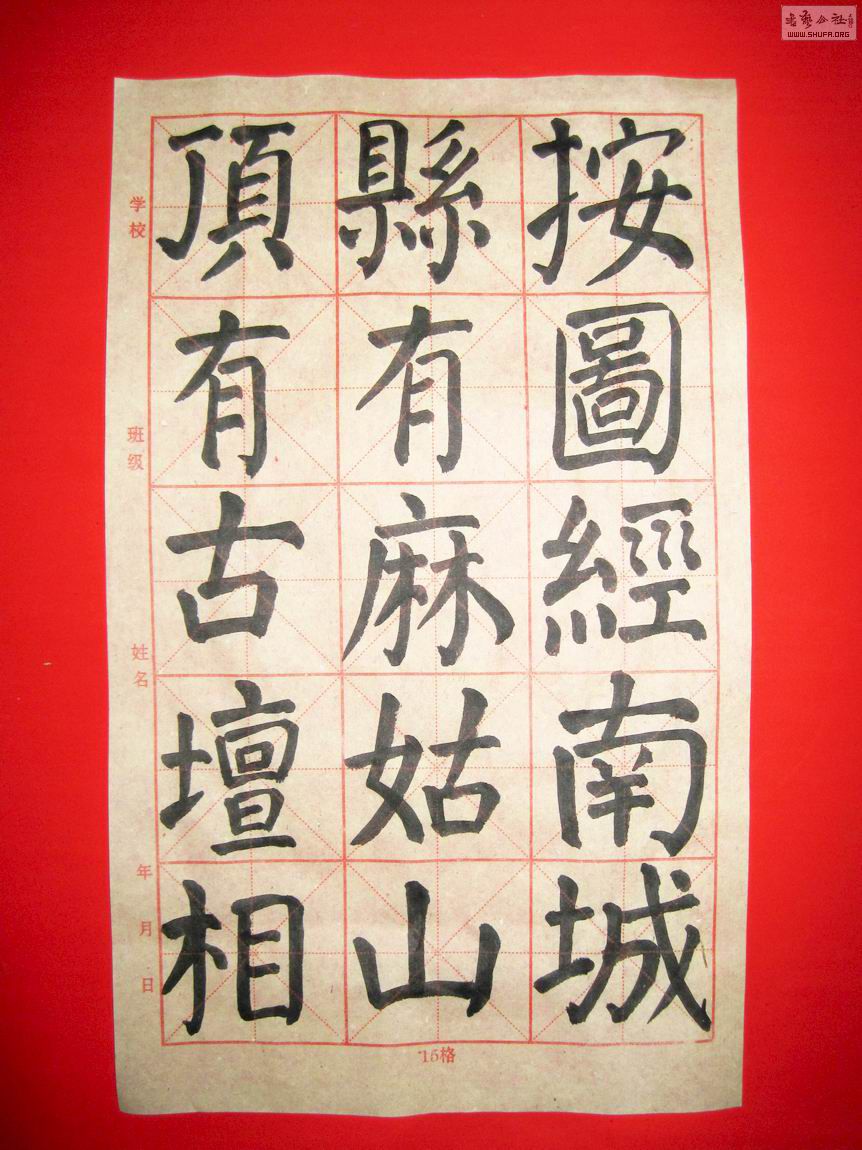 按圖經南城
縣有麻姑山
頂有古壇相
学校
班级
姓名
年月日
15格
WWW.SHUFA.ORG